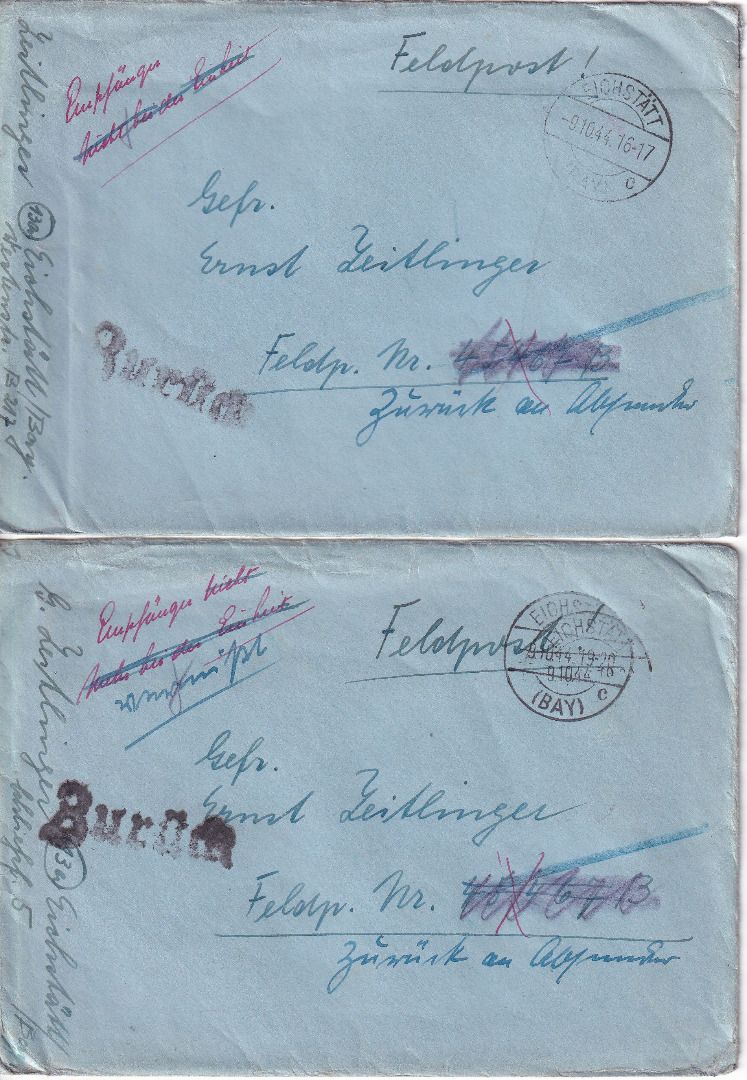 Feldpost!
EICHSTÄTT
-9.10.44.16-17
(BAY) c
Empfänger
nicht bei der Einheit
Gefr.
Ernst Zeitlinger
Feldp. Nr. 45467 B
Zurück an Absender
Zurück
Zeitlinger (13a) Eichstätt/Bay.
Feldpost!
EICHSTÄTT
EICHSTÄTT
9.10.44.19-20
9.10.44.16
(BAY) c
Empfänger nicht
mehr bei der Einheit
vermißt
Gefr.
Ernst Zeitlinger
Feldp. Nr. 45467 B
Zurück an Absender
Zurück
Zeitlinger (13a) Eichstätt/B